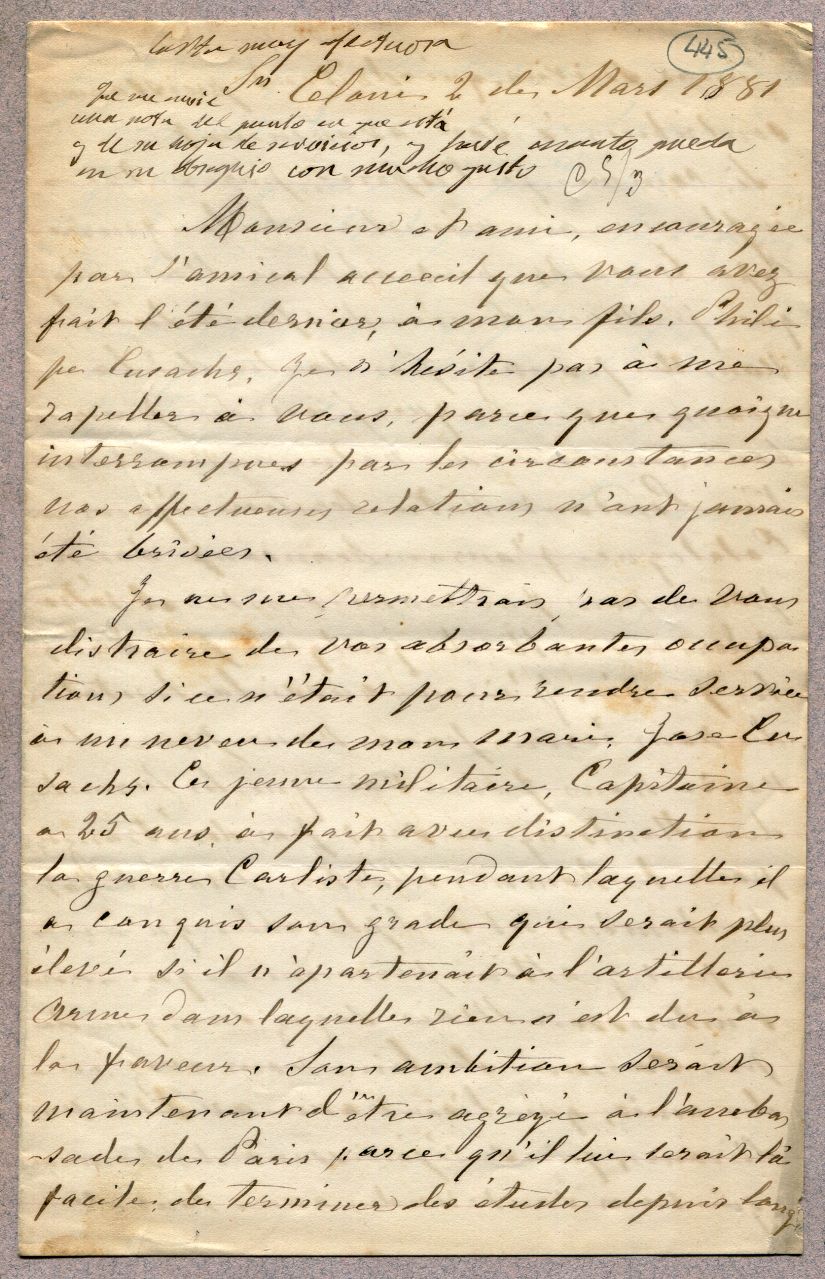 Carta muy afectuosa
445
Sn Celoni 2 de Mars 1881
Que me envié
una nota del punto en que está
y de su hoja de servicios, y haré cuanto pueda
en su obsequio con mucho gusto
C 5/3
Monsieur et ami, encouragée
par l'amical acceuil que vous avez
fait l'été dernier, à mon fils. Phili
pe Cusachs. Je n'hésite pas à me
rapeller à vous, parce que quoique
interrompues par les circonstances
nos affectueuses relations n'ont jamais
été brisées.
Je ne me permettrais pas de vous
distraire de vos absorbantes occupa
tions si ce n'était pour rendre service
à un neveu de mon mari. Jose Cu
sachs. Ce jeune militaire, Capitaine
a 25 ans, à fait avec distinction
la guerre Carliste, pendant laquelle il
a conquis son grade qui serait plus
élevé si il n'apartenait à l'artillerie
Arme dans laquelle rien n'est du à
la faveur. Son ambition serait
maintenant d'être agrégé à l'amba
sade de Paris parce qu'il lui serait là
facile, de terminer des études depuis long